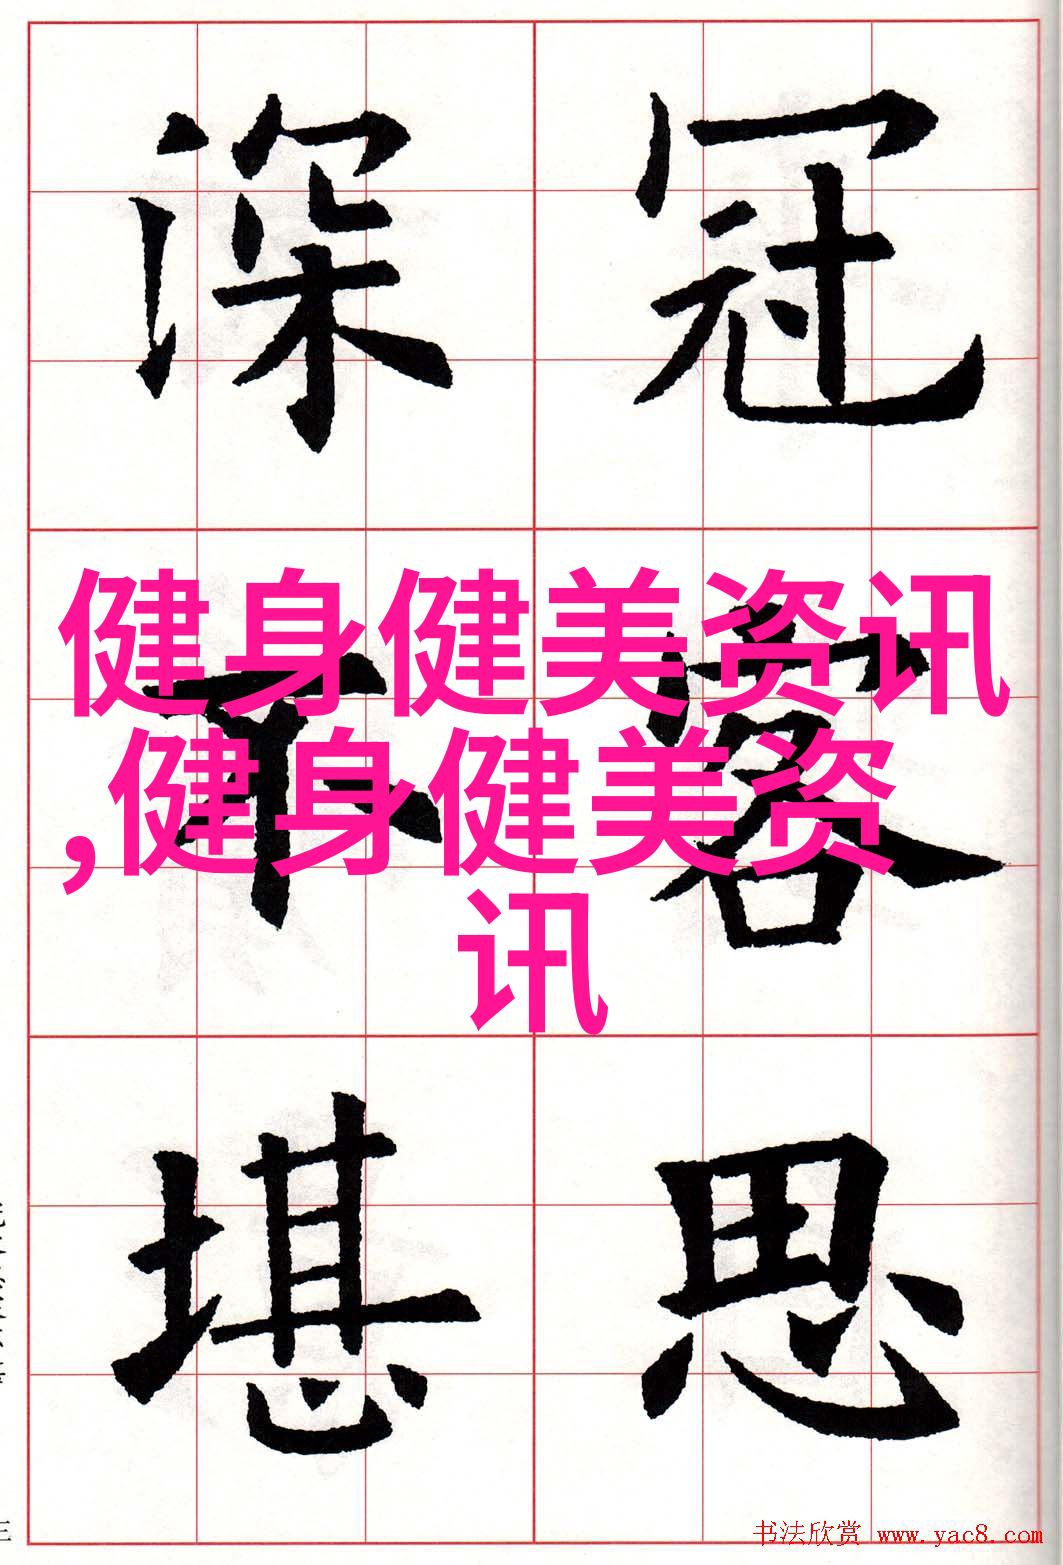 冠客思
深不堪
健身健美资讯
,健身健美资
讯
书法欣赏 www.yac8.com